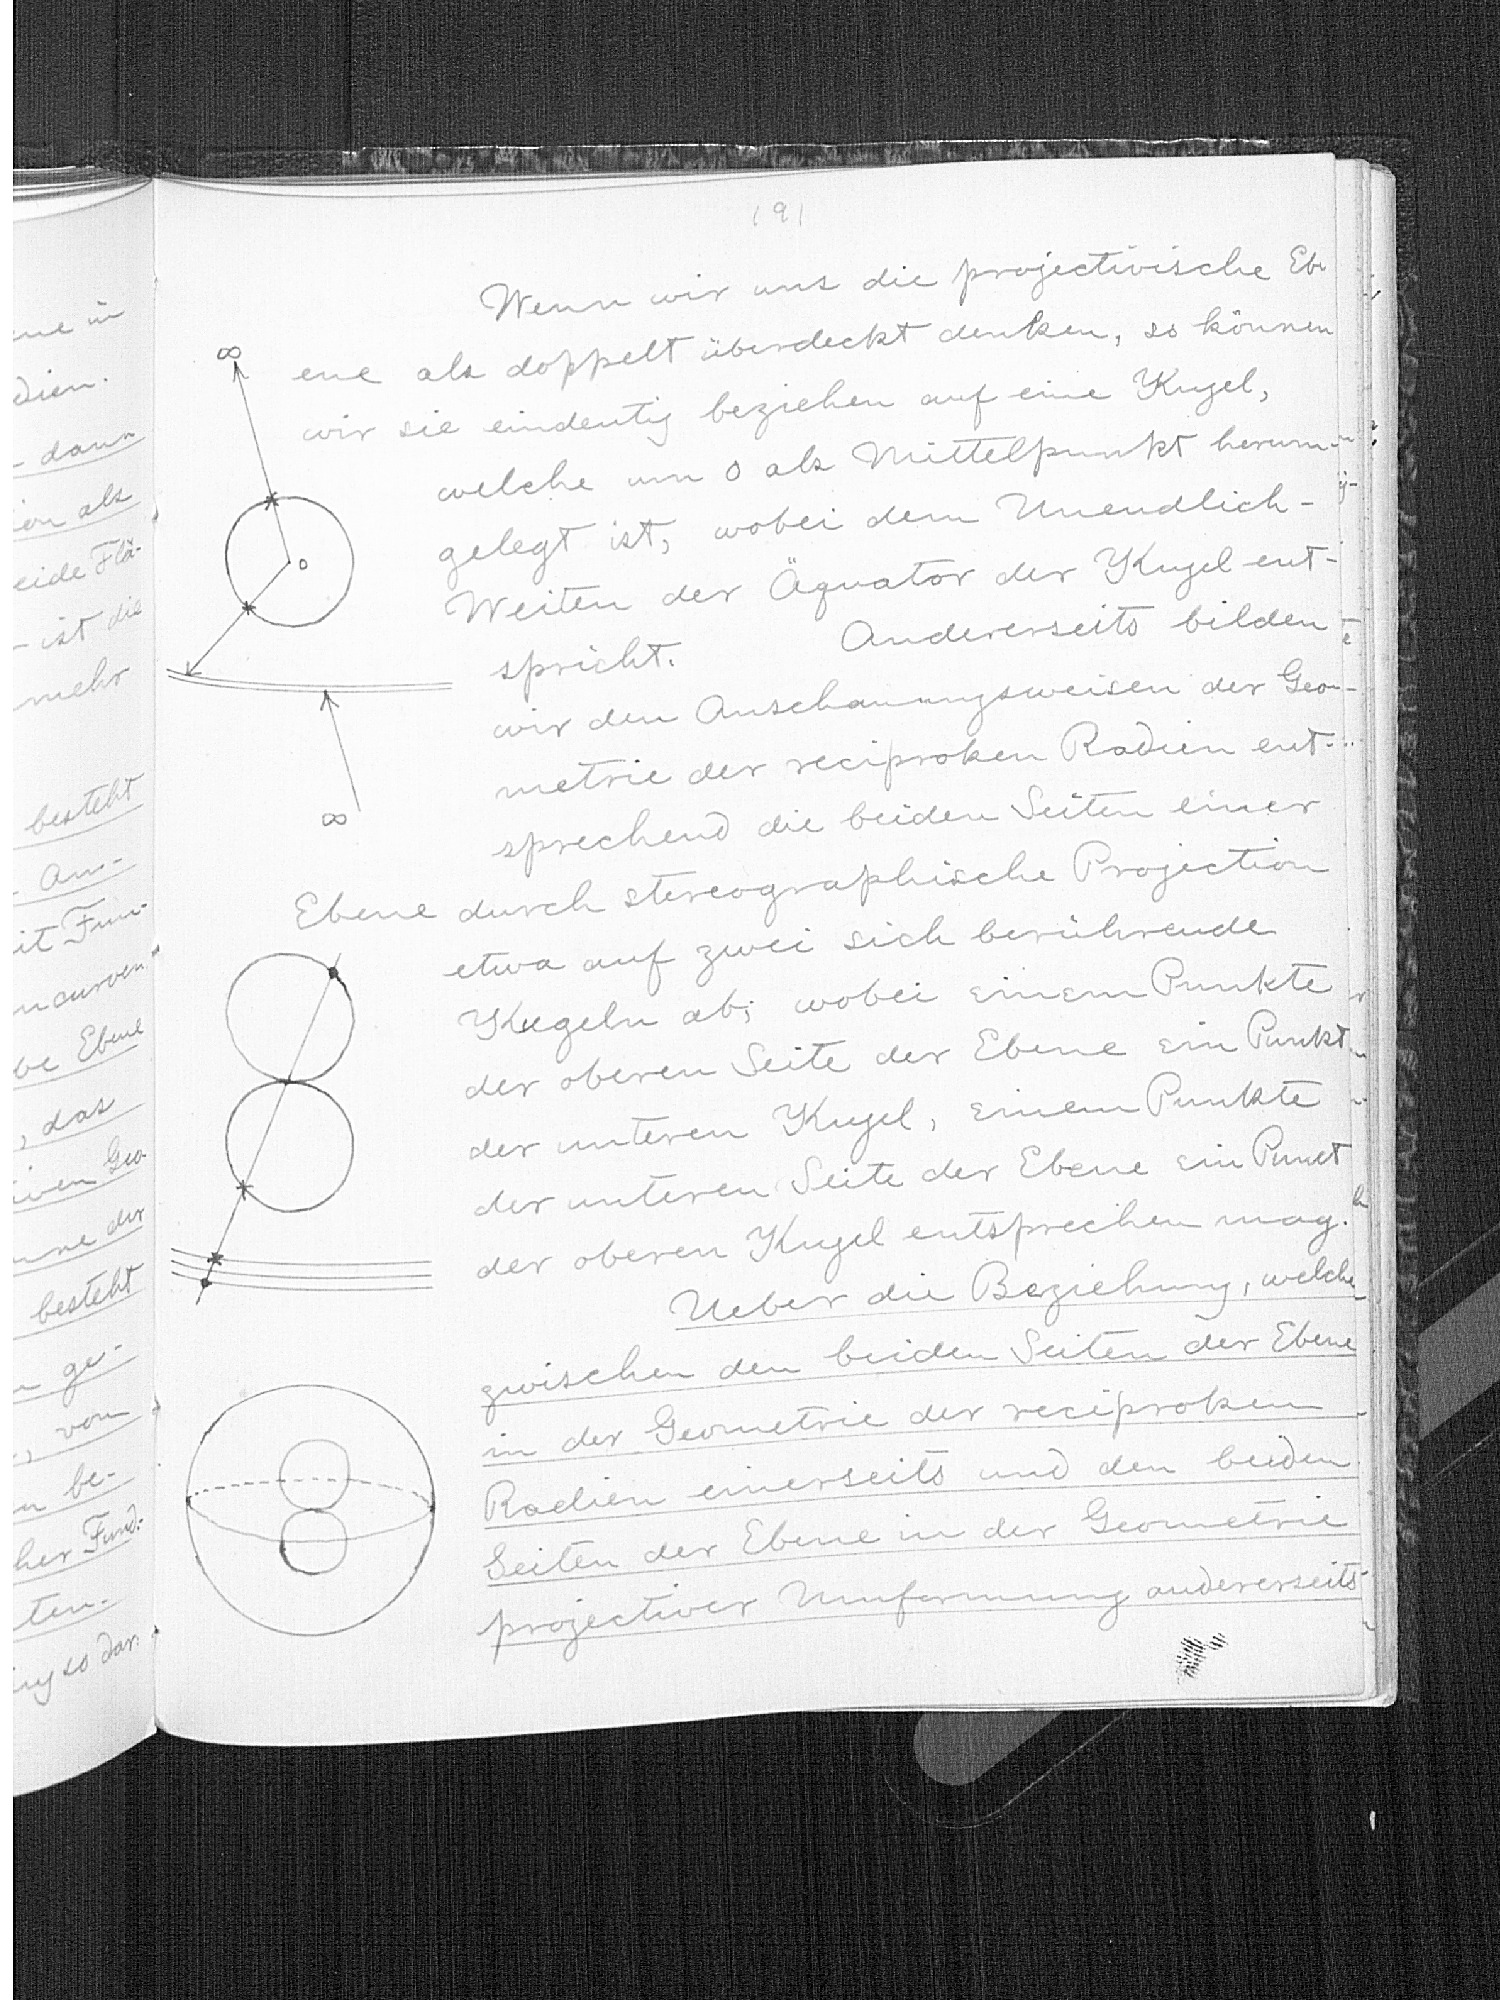 ene in
dien.
dann
ion als
eide Flä-
ist die
mehr
besteht
An-
it Fun-
ncurven
be Ebene
, das
iven Geo
nne der
besteht
n ge-
, von
n be-
her Fund:
ten.
ng so dar.
191
Wenn wir uns die projectivische Eb
ene als doppelt überdeckt denken, so können
wir sie eindeutig beziehen auf eine Kugel,
welche um O als Mittelpunkt herum-
gelegt ist, wobei dem Unendlich-
Weiten der Äquator der Kugel ent-
spricht. Andererseits bilden
wir den Anschauungsweisen der Geo-
metrie der reciproken Radien ent-
sprechend die beiden Seiten einer
Ebene durch stereographische Projection
etwa auf zwei sich berührende
Kugeln ab; wobei einem Punkte
der oberen Seite der Ebene ein Punkt
der unteren Kugel, einem Punkte
der unteren Seite der Ebene ein Punct
der oberen Kugel entsprechen mag.
Ueber die Beziehung, welche
zwischen den beiden Seiten der Ebene
in der Geometrie der reciproken
Radien einerseits und den beiden
Seiten der Ebene in der Geometrie
projectiver Umformung andererseits
∞
o
∞